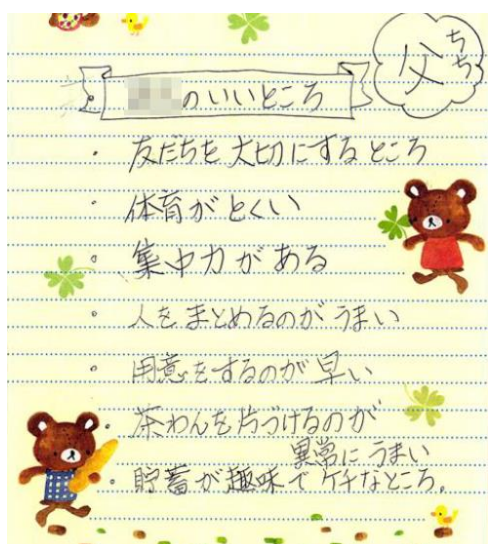 父
ちち
のいいところ
・友だちを大切にするところ
・体育がとくい
・集中力がある
・人をまとめるのがうまい
・用意をするのが早い
・茶わんを片づけるのが
異常にうまい
・貯蓄が趣味でケチなところ。